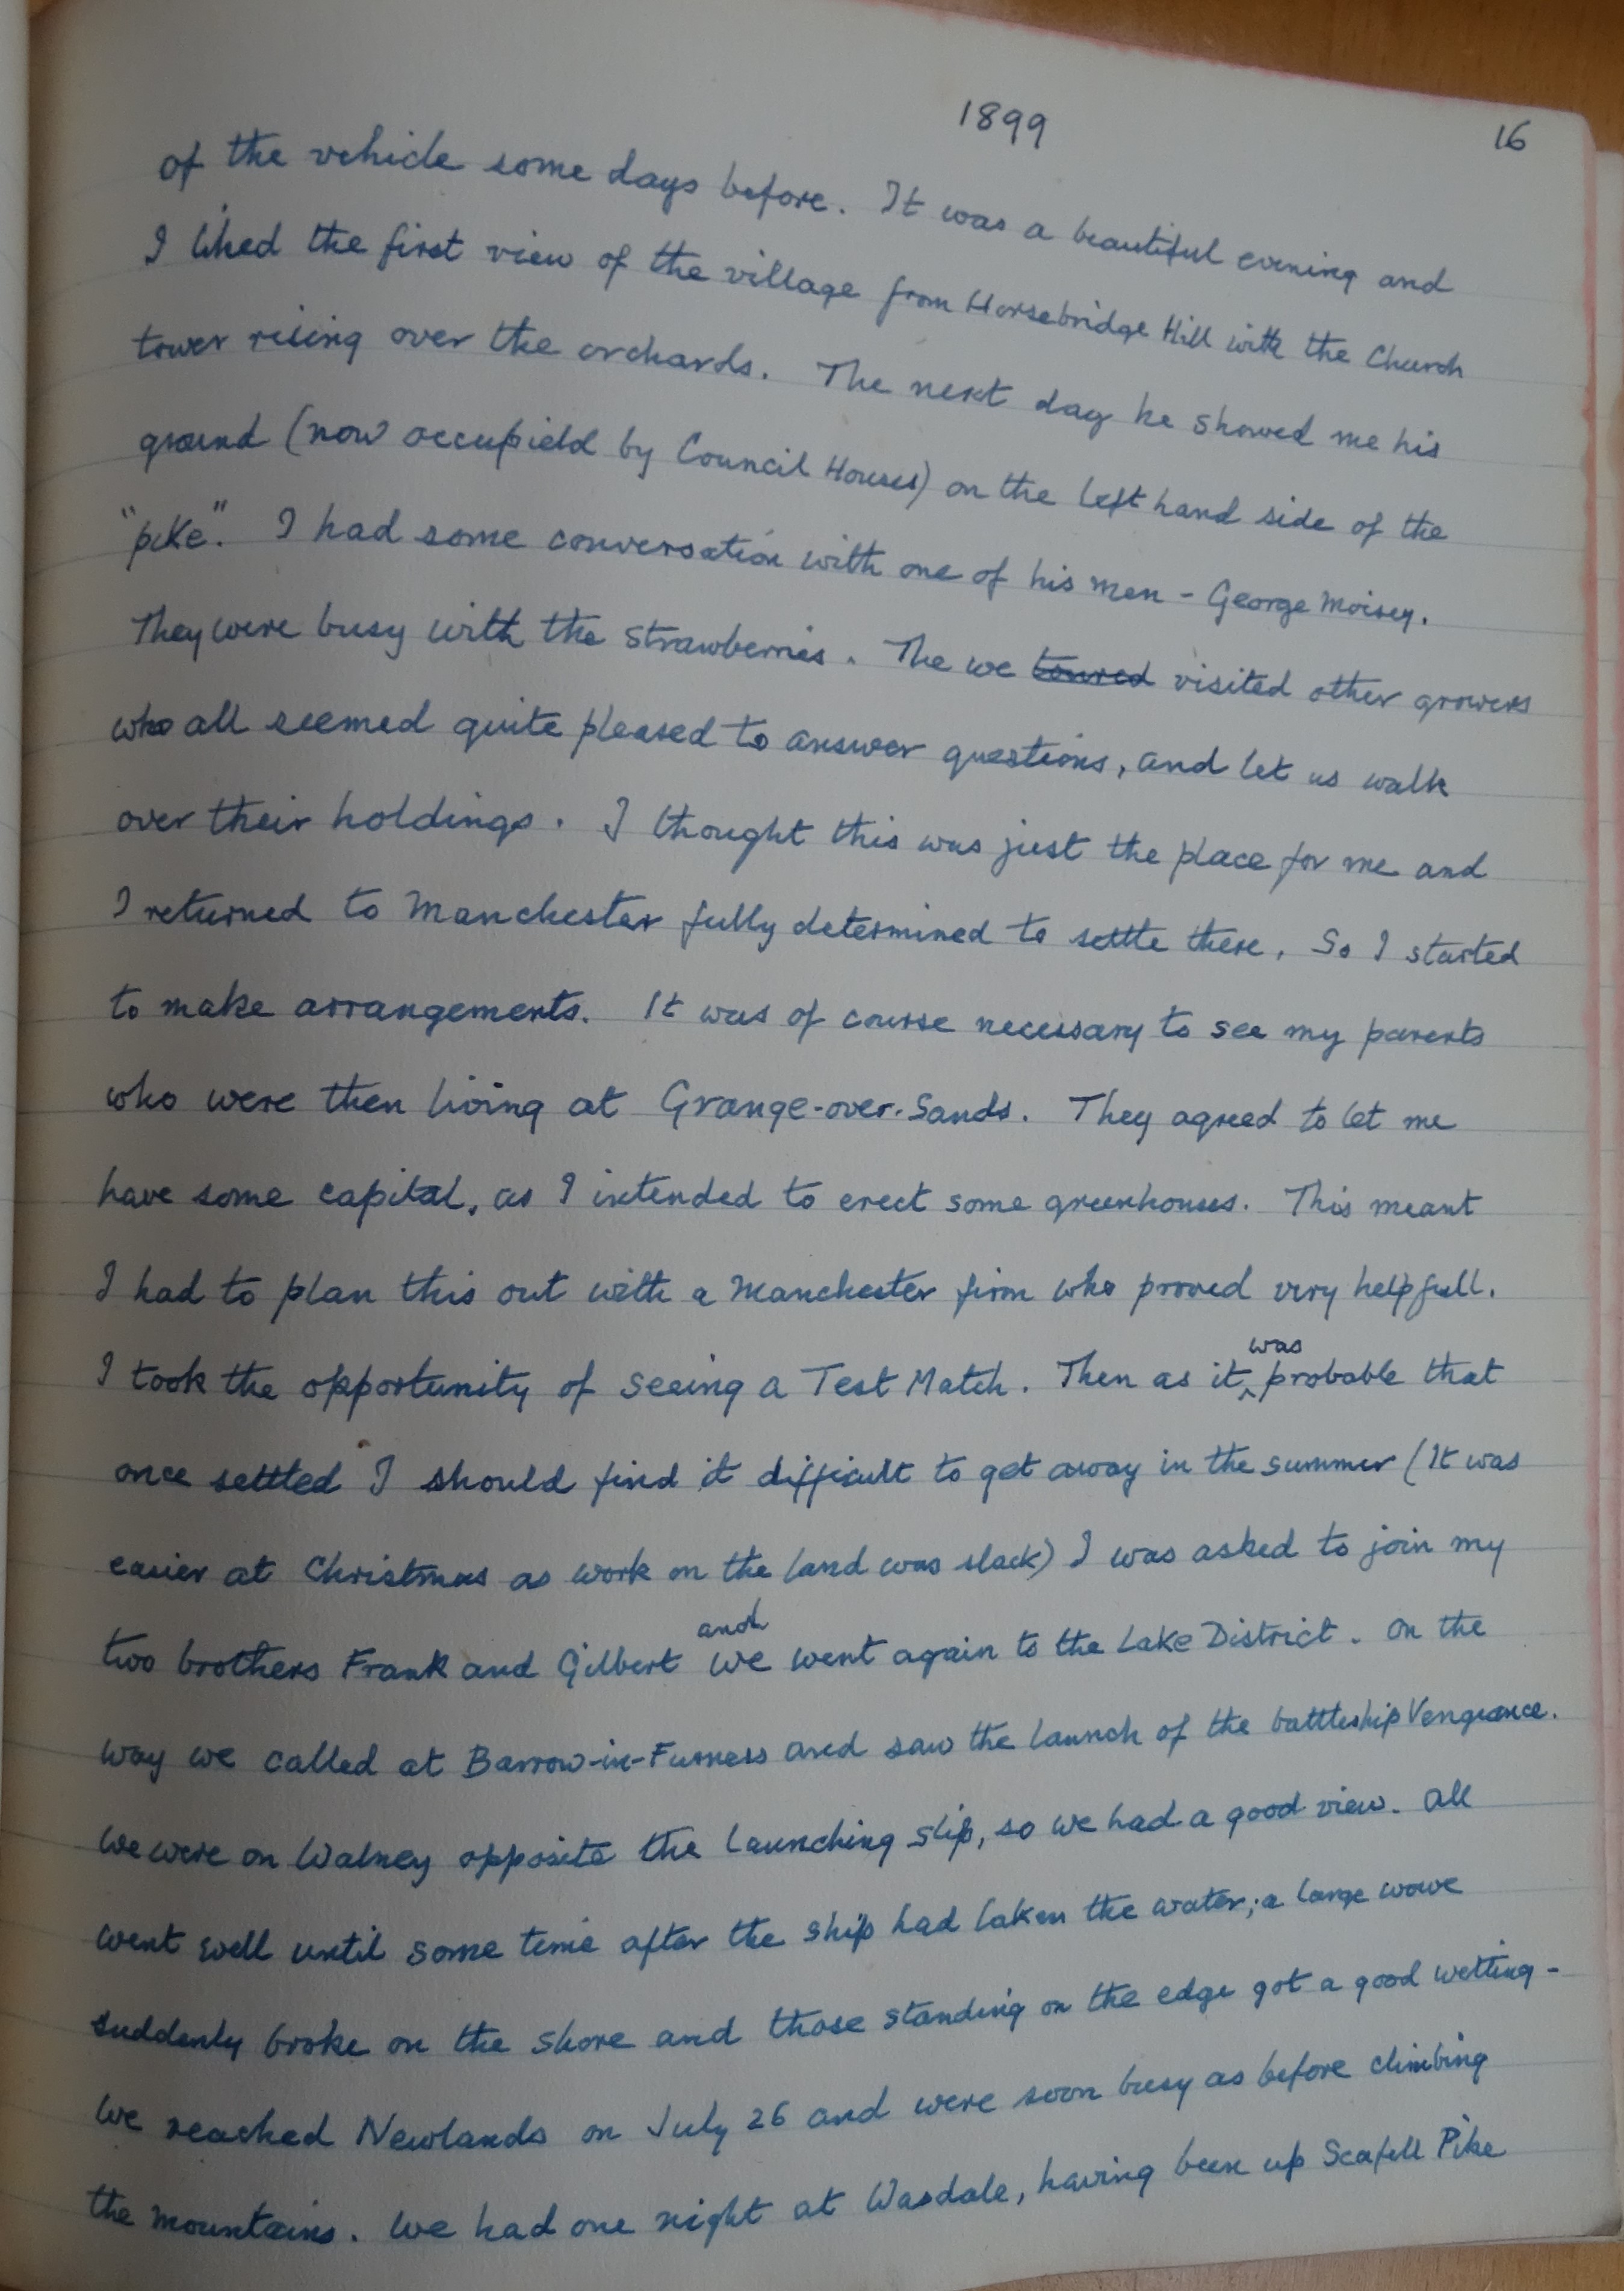 1899
16
of the vehicle some days before. It was a beautiful evening and
I liked the first view of the village from Horsebridge Hill with the Church
tower rising over the orchards. The next day he showed me his
ground (now occupield by Council Houses) on the left hand side of the
"pike". I had some conversation with one of his men - George Moisey.
They were busy with the strawberries. The we toured visited other growers
who all seemed quite pleased to answer questions, and let us walk
over their holdings. I thought this was just the place for me and
I returned to Manchester fully determined to settle there. So I started
to make arrangements. It was of course necessary to see my parents
who were then living at Grange-over-Sands. They agreed to let me
have some capital, as I intended to erect some greenhouses. This meant
I had to plan this out with a Manchester firm who proved very helpfull.
I took the opportunity of seeing a Test Match. Then as it was probable that
once settled I should find it difficult to get away in the summer (It was
easier at Christmas as work on the land was slack) I was asked to join my
two brothers Frank and Gilbert and we went again to the Lake District. On the
way we called at Barrow-in-Furness and saw the launch of the battleship Vengeance.
We were on Walney opposite the launching slip, so we had a good view. All
went well until some time after the ship had taken the water; a large wave
suddenly broke on the shore and those standing on the edge got a good wetting -
We reached Newlands on July 26 and were soon busy as before climbing
the mountains. We had one night at Wasdale, having been up Scafell Pike